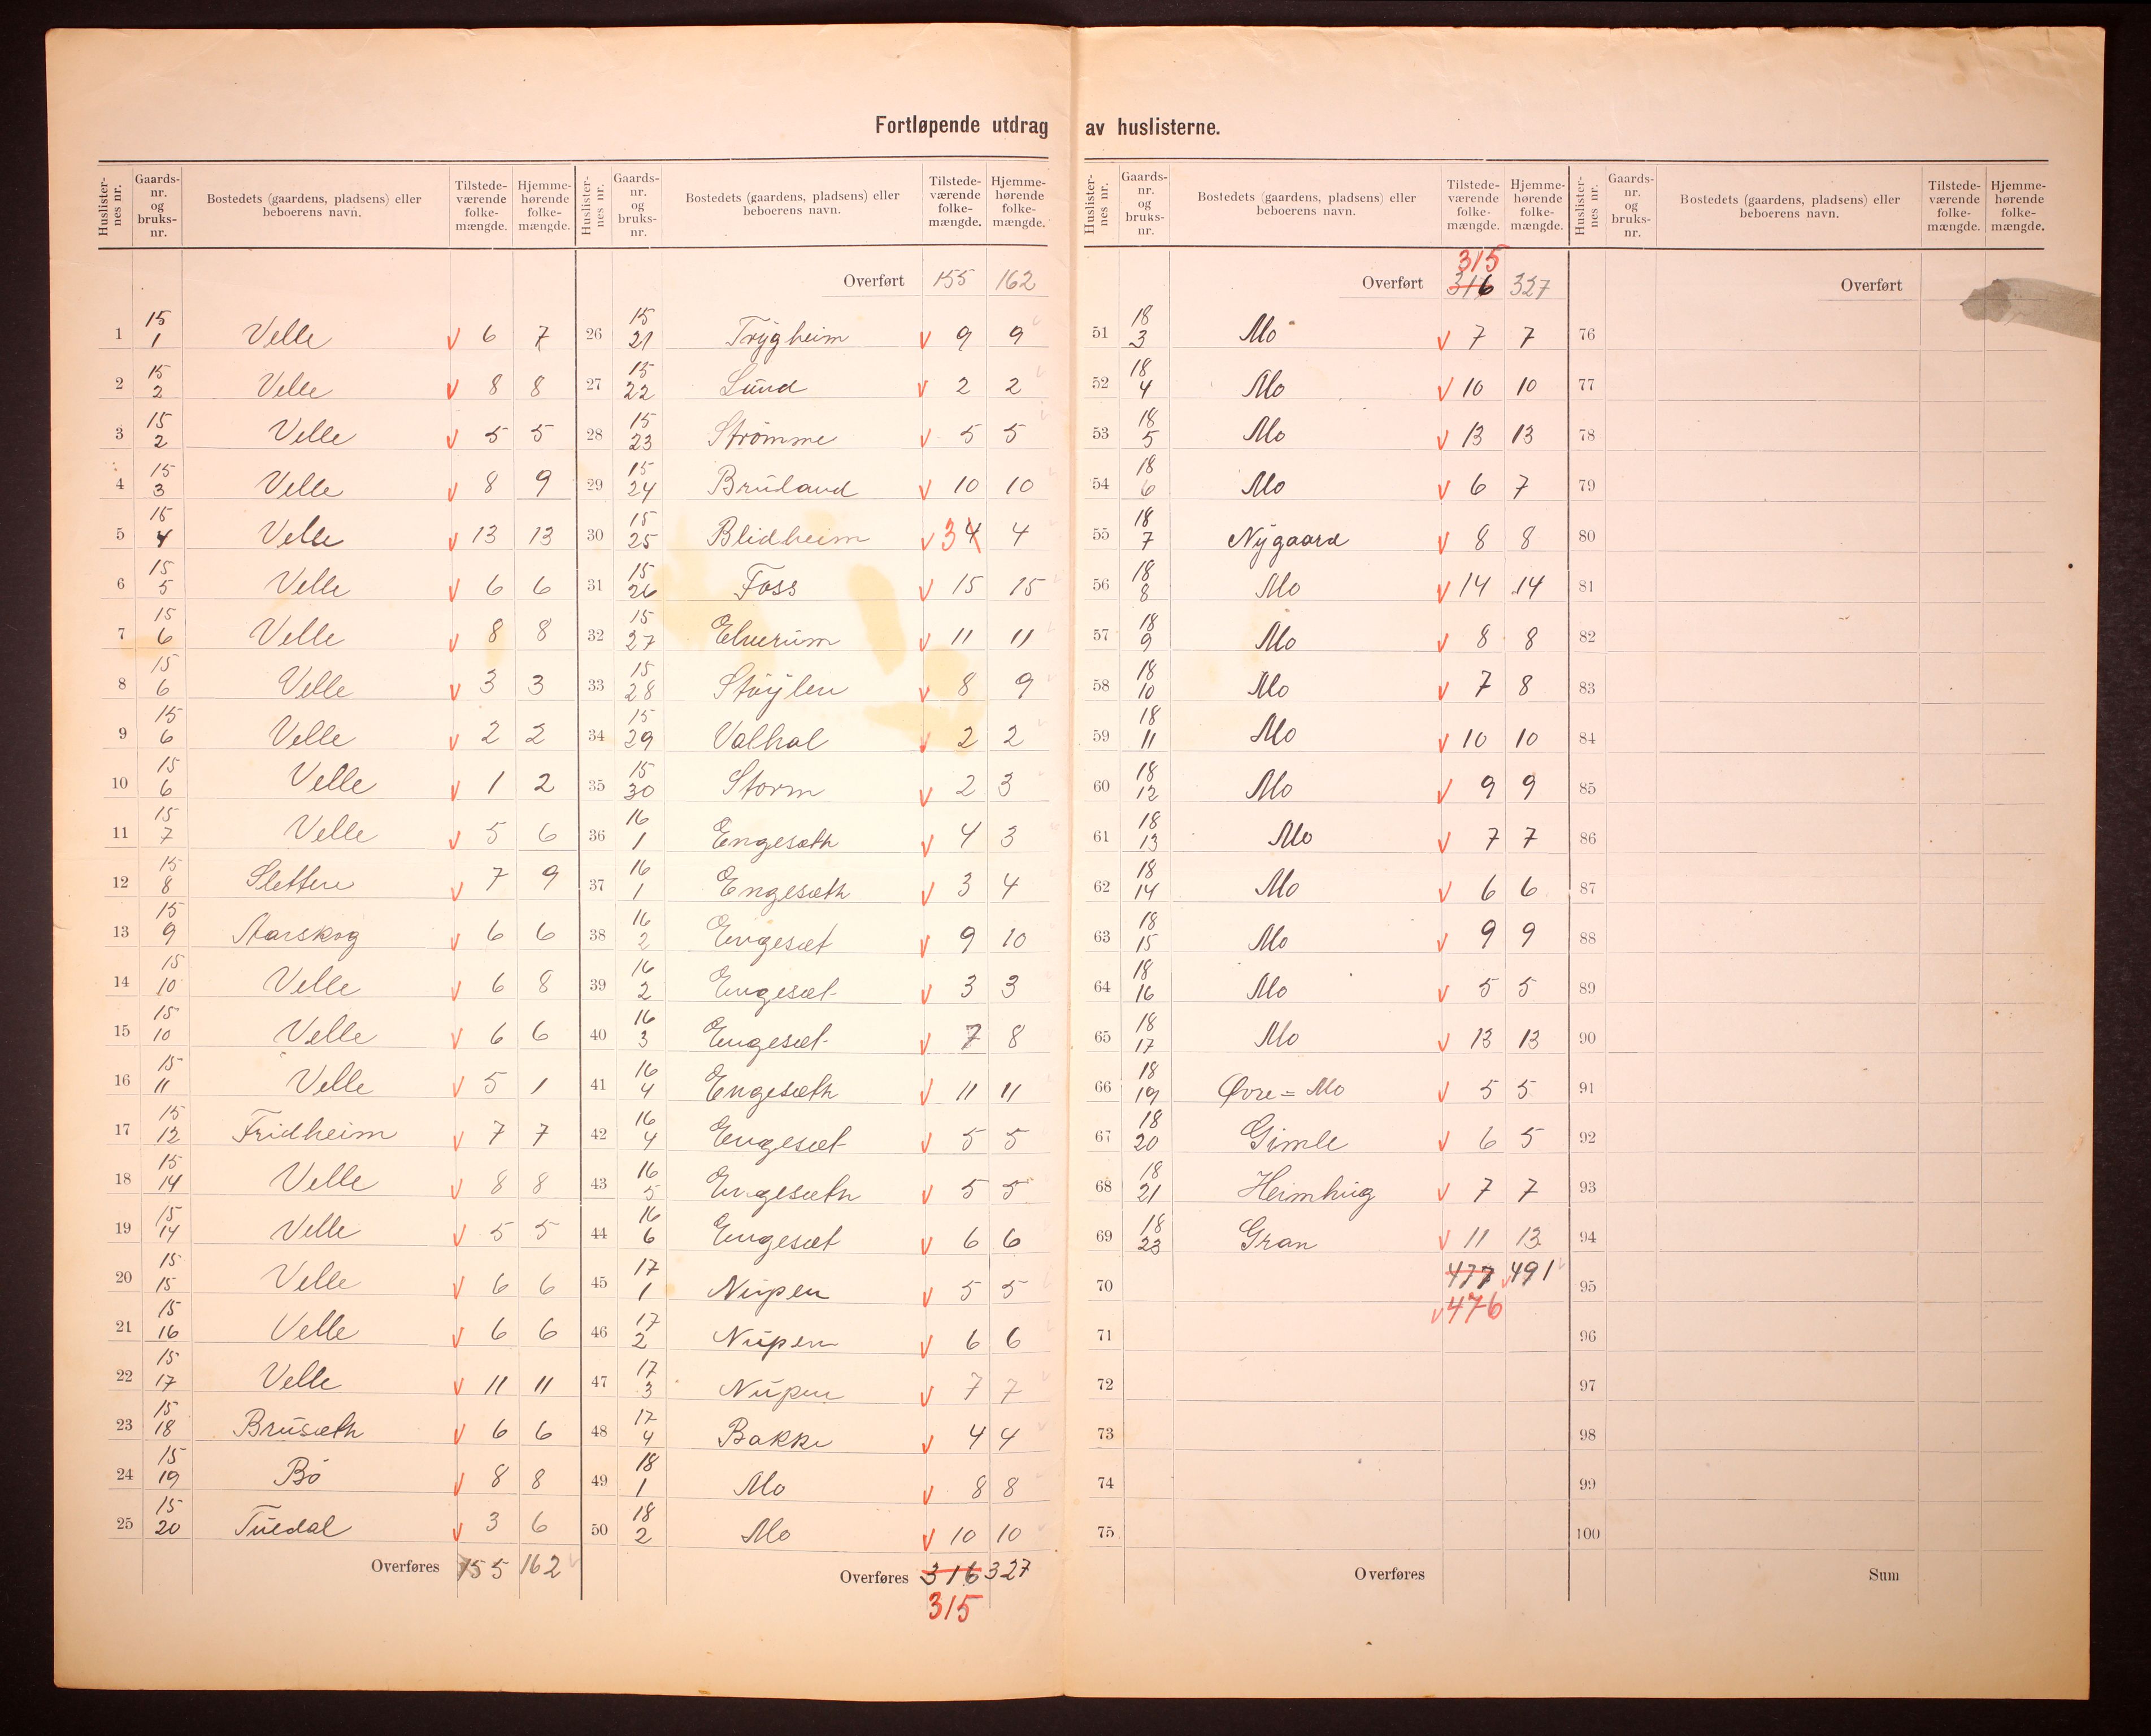 Fortløpende utdrag av huslisterne.
Huslisternes nr. Gaards-nr. og bruks-nr. Bostedets (gaardens, pladsens) eller beboerens navn. Tilstede-værende folke-mængde. Hjemme-hørende folke-mængde.
1 15/1 Velle v 6 7
2 15/2 Velle v 8 8
3 15/2 Velle v 5 5
4 15/3 Velle v 8 9
5 15/4 Velle v 13 13
6 15/5 Velle v 6 6
7 15/6 Velle v 8 8
8 15/6 Velle v 3 3
9 15/6 Velle v 2 2
10 15/6 Velle v 1 2
11 15/7 Velle v 5 6
12 15/8 Slettene v 7 9
13 15/9 Aarskog v 6 6
14 15/10 Velle v 6 8
15 15/10 Velle v 6 6
16 15/11 Velle v 5 1
17 15/12 Fridheim v 7 7
18 15/14 Velle v 8 8
19 15/14 Velle v 5 5
20 15/15 Velle v 6 6
21 15/16 Velle v 6 6
22 15/17 Velle v 11 11
23 15/18 Brusæth v 6 6
24 15/19 Bö v 8 8
25 15/20 Tuedal v 3 6
Overføres 155 162
Huslisternes nr. Gaards-nr. og bruks-nr. Bostedets (gaardens, pladsens) eller beboerens navn. Tilstede-værende folke-mængde. Hjemme-hørende folke-mængde.
Overført 155 162
26 15/21 Trygheim v 9 9
27 15/22 Lund v 2 2
28 15/23 Strömme v 5 5
29 15/24 Bruland v 10 10
30 15/25 Blidheim v 3 4 4
31 15/26 Foss v 15 15
32 15/27 Elverum v 11 11
33 15/28 Stöylen v 8 9
34 15/29 Valhal v 2 2
35 15/30 Storm v 2 3
36 16/1 Engesæth v 4 3
37 16/1 Engesæth v 3 4
38 16/2 Engesæt v 9 10
39 16/2 Engesæt v 3 3
40 16/3 Engesæt v 7 8
41 16/4 Engesæth v 11 11
42 16/4 Engesæt v 5 5
43 16/5 Engesæth v 5 5
44 16/6 Engesæt v 6 6
45 17/1 Nupen v 5 5
46 17/2 Nupen v 6 6
47 17/3 Nupen v 7 7
48 17/4 Bakke v 4 4
49 18/1 Mo v 8 8
50 18/2 Mo v 10 10
Overføres 316 327
315
Huslisternes nr. Gaards-nr. og bruks-nr. Bostedets (gaardens, pladsens) eller beboerens navn. Tilstede-værende folke-mængde. Hjemme-hørende folke-mængde.
315
Overført 316 327
51 18/3 Mo v 7 7
52 18/4 Mo v 10 10
53 18/5 Mo v 13 13
54 18/6 Mo v 6 7
55 18/7 Nygaard v 8 8
56 18/8 Mo v 14 14
57 18/9 Mo v 8 8
58 18/10 Mo v 7 8
59 18/11 Mo v 10 10
60 18/12 Mo v 9 9
61 18/13 Mo v 7 7
62 18/14 Mo v 6 6
63 18/15 Mo v 9 9
64 18/16 Mo v 5 5
65 18/17 Mo v 13 13
66 18/19 Øvre=Mo v 5 5
67 18/20 Gimle v 6 5
68 18/21 Heimhug v 7 7
69 18/23 Gran v 11 13
70 477 v 491
v 476
71
72
73
74
75
Overføres
Huslisternes nr. Gaards-nr. og bruks-nr. Bostedets (gaardens, pladsens) eller beboerens navn. Tilstede-værende folke-mængde. Hjemme-hørende folke-mængde.
Overført
76
77
78
79
80
81
82
83
84
85
86
87
88
89
90
91
92
93
94
95
96
97
98
99
100
Sum